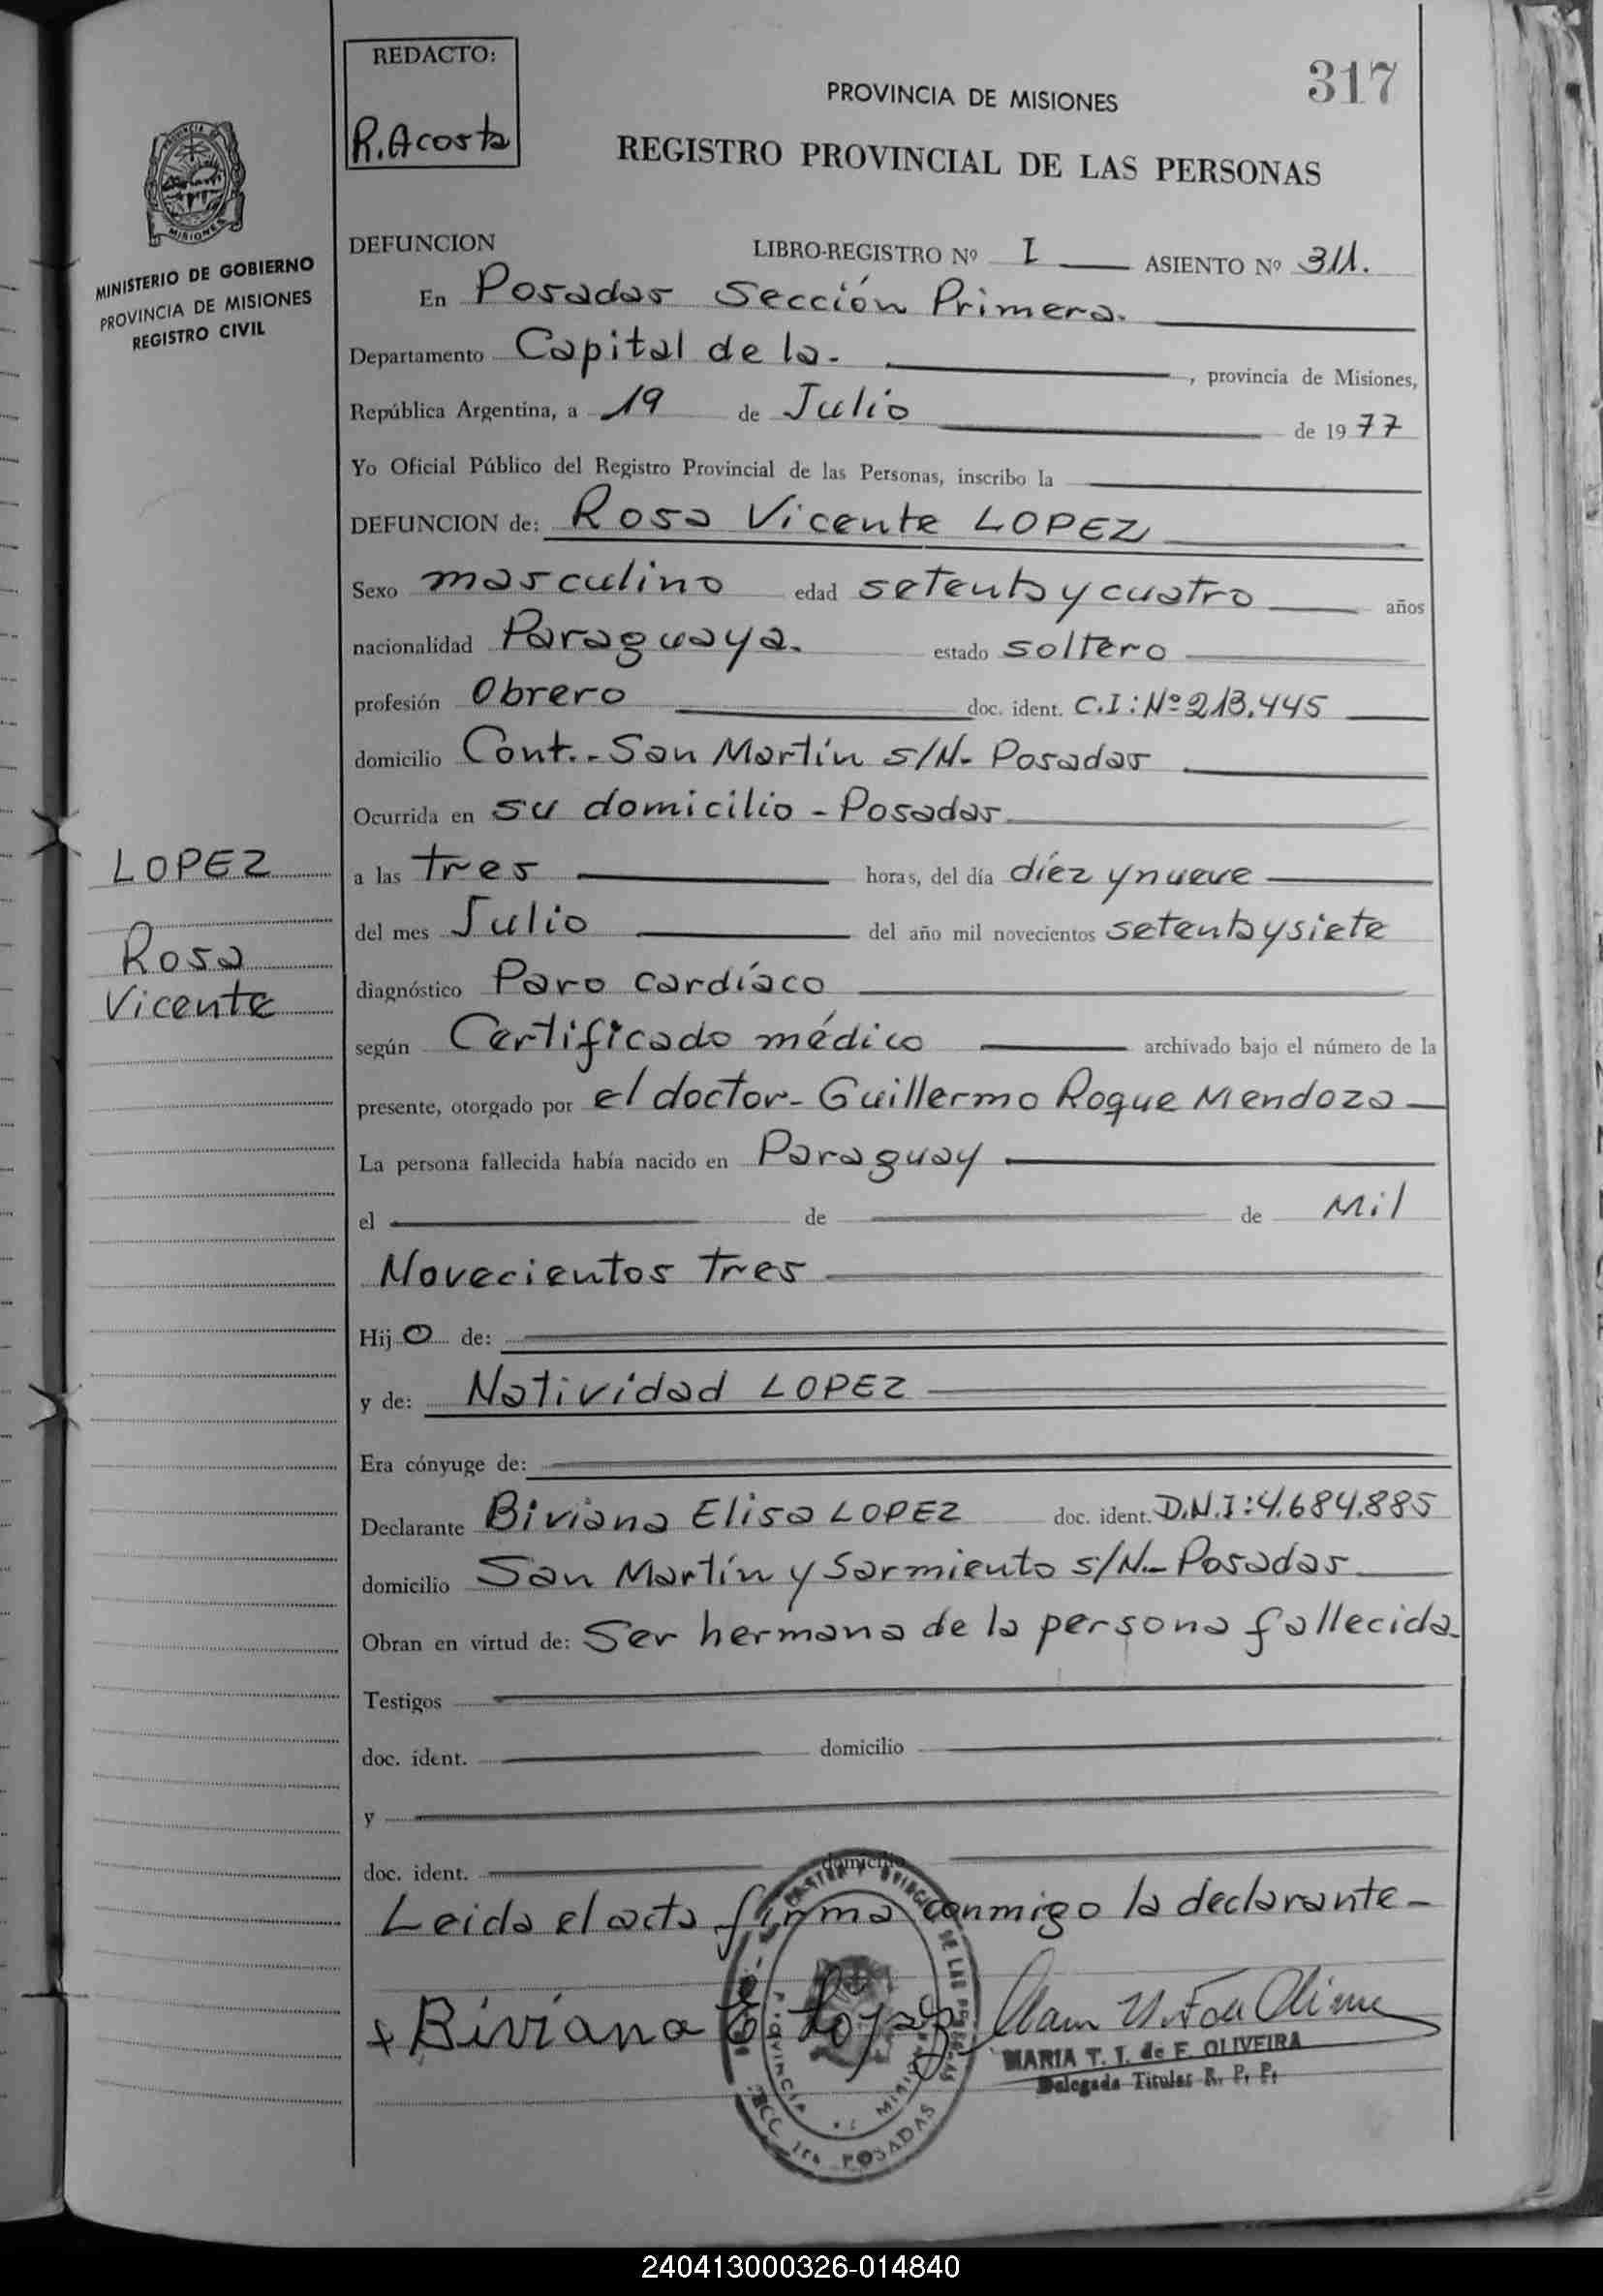 317
REDACTO:
R. Acosta
PROVINCIA DE MISIONES
REGISTRO PROVINCIAL DE LAS PERSONAS
MISIONES
MINISTERIO DE GOBIERNO
PROVINCIA DE MISIONES
REGISTRO CIVIL
DEFUNCION LIBRO-REGISTRO Nº I ASIENTO Nº 311.
En Posadas Sección Primera.
Departamento Capital de la. , provincia de Misiones,
República Argentina, a 19 de Julio de 1977
Yo Oficial Público del Registro Provincial de las Personas, inscribo la
DEFUNCION de: Rosa Vicente LOPEZ
Sexo masculino edad setenta y cuatro años
nacionalidad Paraguaya. estado soltero
profesión Obrero doc. ident. C.I: Nº 213.445
domicilio Cont.- San Martín s/N- Posadas
Ocurrida en su domicilio - Posadas
LOPEZ
a las tres horas, del día díez y nueve
del mes Julio del año mil novecientos setenta y siete
Rosa
Vicente
diagnóstico Paro cardíaco
según Certificado médico archivado bajo el número de la
presente, otorgado por el doctor- Guillermo Roque Mendoza
La persona fallecida había nacido en Paraguay
el de de Mil
Novecientos tres
Hijo de:
y de: Natividad LOPEZ
Era cónyuge de:
Declarante Biviana Elisa LOPEZ doc. ident. D.N.I: 4.684.885
domicilio San Martín y Sarmiento s/N.- Posadas
Obran en virtud de: Ser hermana de la persona fallecida-
Testigos
doc. ident. domicilio
y
doc. ident. domicilio
Leida el acta firma conmigo la declarante-
+ Biviana E Lopez
MARIA T. I. de F. OLIVEIRA
Delegada Titular R. P. P.
SECC 1ra POSADAS
240413000326-014840